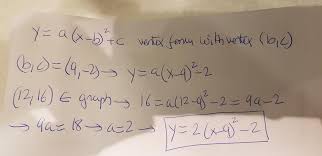 y = a(x-b)²+c vertex form with vertex (b,c)
(b,c) = (9,-2) → y = a(x-9)²-2
(12,16) ∈ graph → 16 = a(12-9)²-2 = 9a-2
→ 9a = 18 → a=2 → y = 2(x-9)²-2